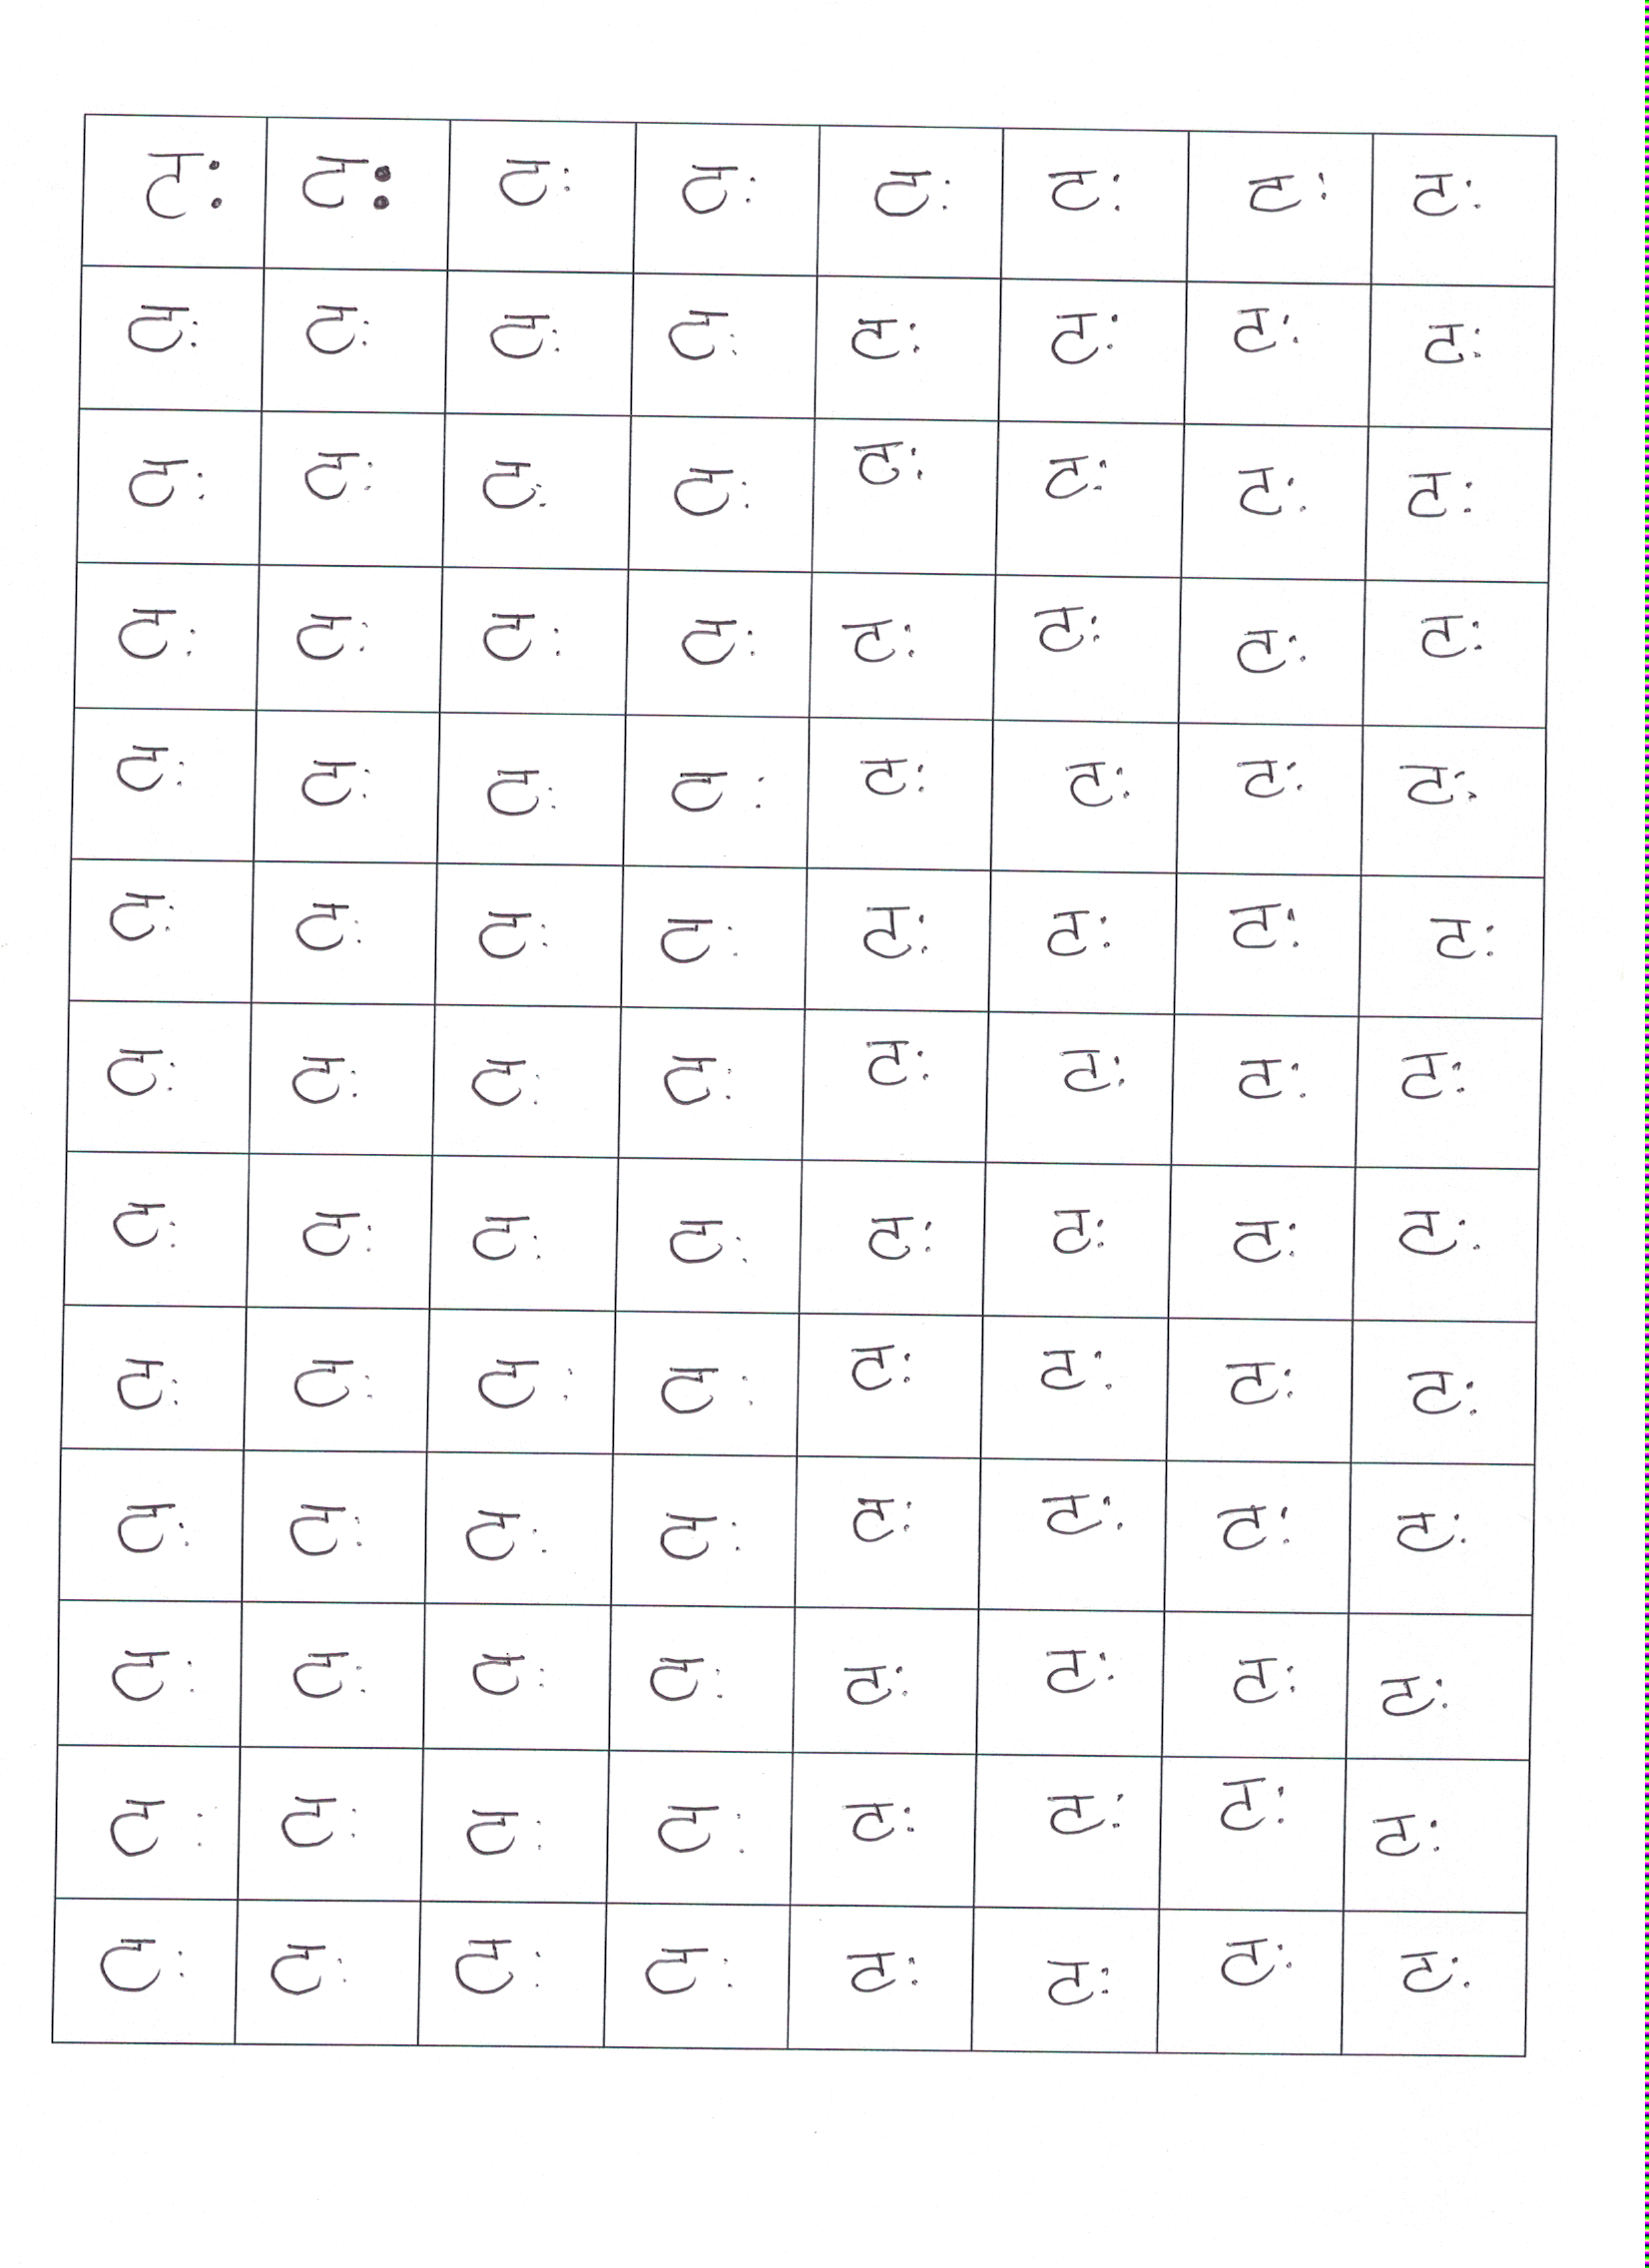 टः टः टः टः टः टः टः टः
टः टः टः टः टः टः टः टः
टः टः टः टः टः टः टः टः
टः टः टः टः टः टः टः टः
टः टः टः टः टः टः टः टः
टः टः टः टः टः टः टः टः
टः टः टः टः टः टः टः टः
टः टः टः टः टः टः टः टः
टः टः टः टः टः टः टः टः
टः टः टः टः टः टः टः टः
टः टः टः टः टः टः टः टः
टः टः टः टः टः टः टः टः
टः टः टः टः टः टः टः टः